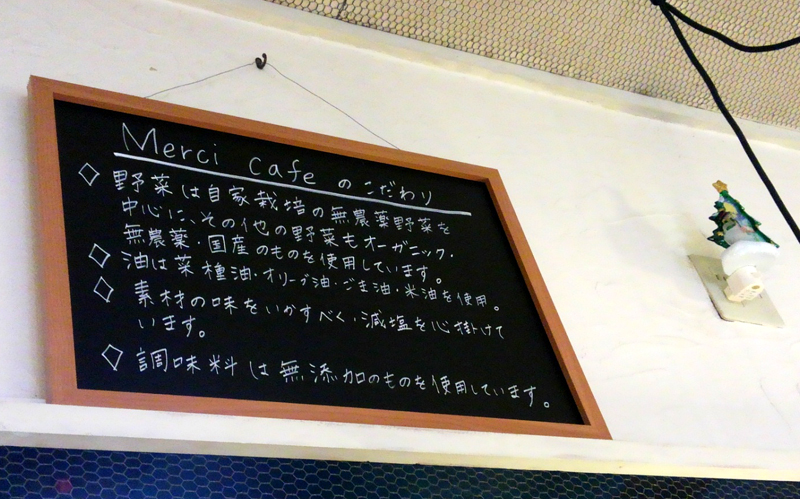 Merci cafe のこだわり
◇ 野菜は自家栽培の無農薬野菜を
中心に、その他の野菜もオーガニック・
無農薬・国産のものを使用しています。
◇ 油は菜種油・オリーブ油・ごま油・米油を使用。
◇ 素材の味をいかすべく、減塩を心掛けて
います。
◇ 調味料は無添加のものを使用しています。